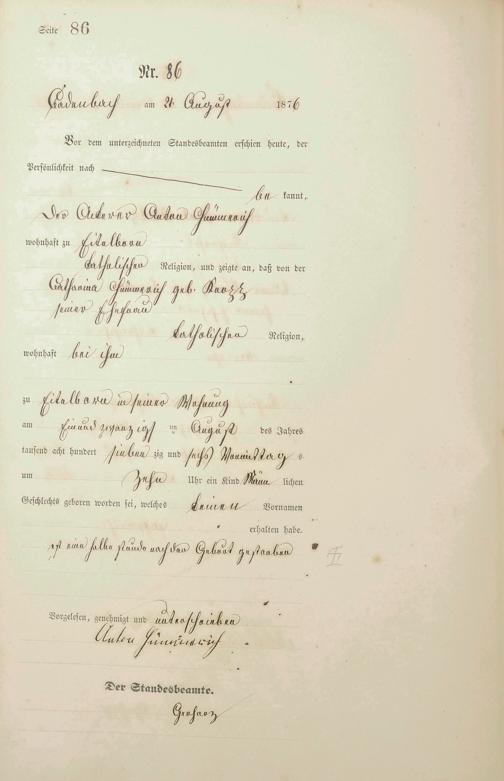 Seite 86
Nr. 86
Cadenbach am 21 August 1876
Vor dem unterzeichneten Standesbeamten erschien heute, der
Persönlichkeit nach
be kannt,
Der Ackerer Anton Hümmerich
wohnhaft zu Eitelborn
katholischer Religion, und zeigte an, daß von der
Catharina Hümmerich geb.
seiner Ehefrau
katholischer Religion,
wohnhaft bei ihm
zu Eitelborn in seiner Wohnung
am Einundzwanzigsten August des Jahres
tausend acht hundert sieben zig und sechs Vormittag s
um Zehn Uhr ein Kind Männ lichen
Geschlechts geboren worden sei, welches keinen Vornamen
erhalten habe.
ist eine halbe stunde nach der Geburt gestorben
Vorgelesen, genehmigt und unterschrieben
Anton Hümmerich
Der Standesbeamte.
Gerharz